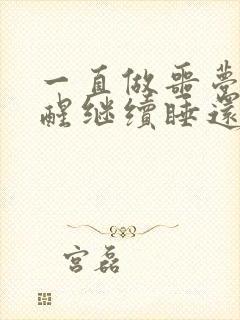 一直做噩梦
醒继续睡还
宫磊